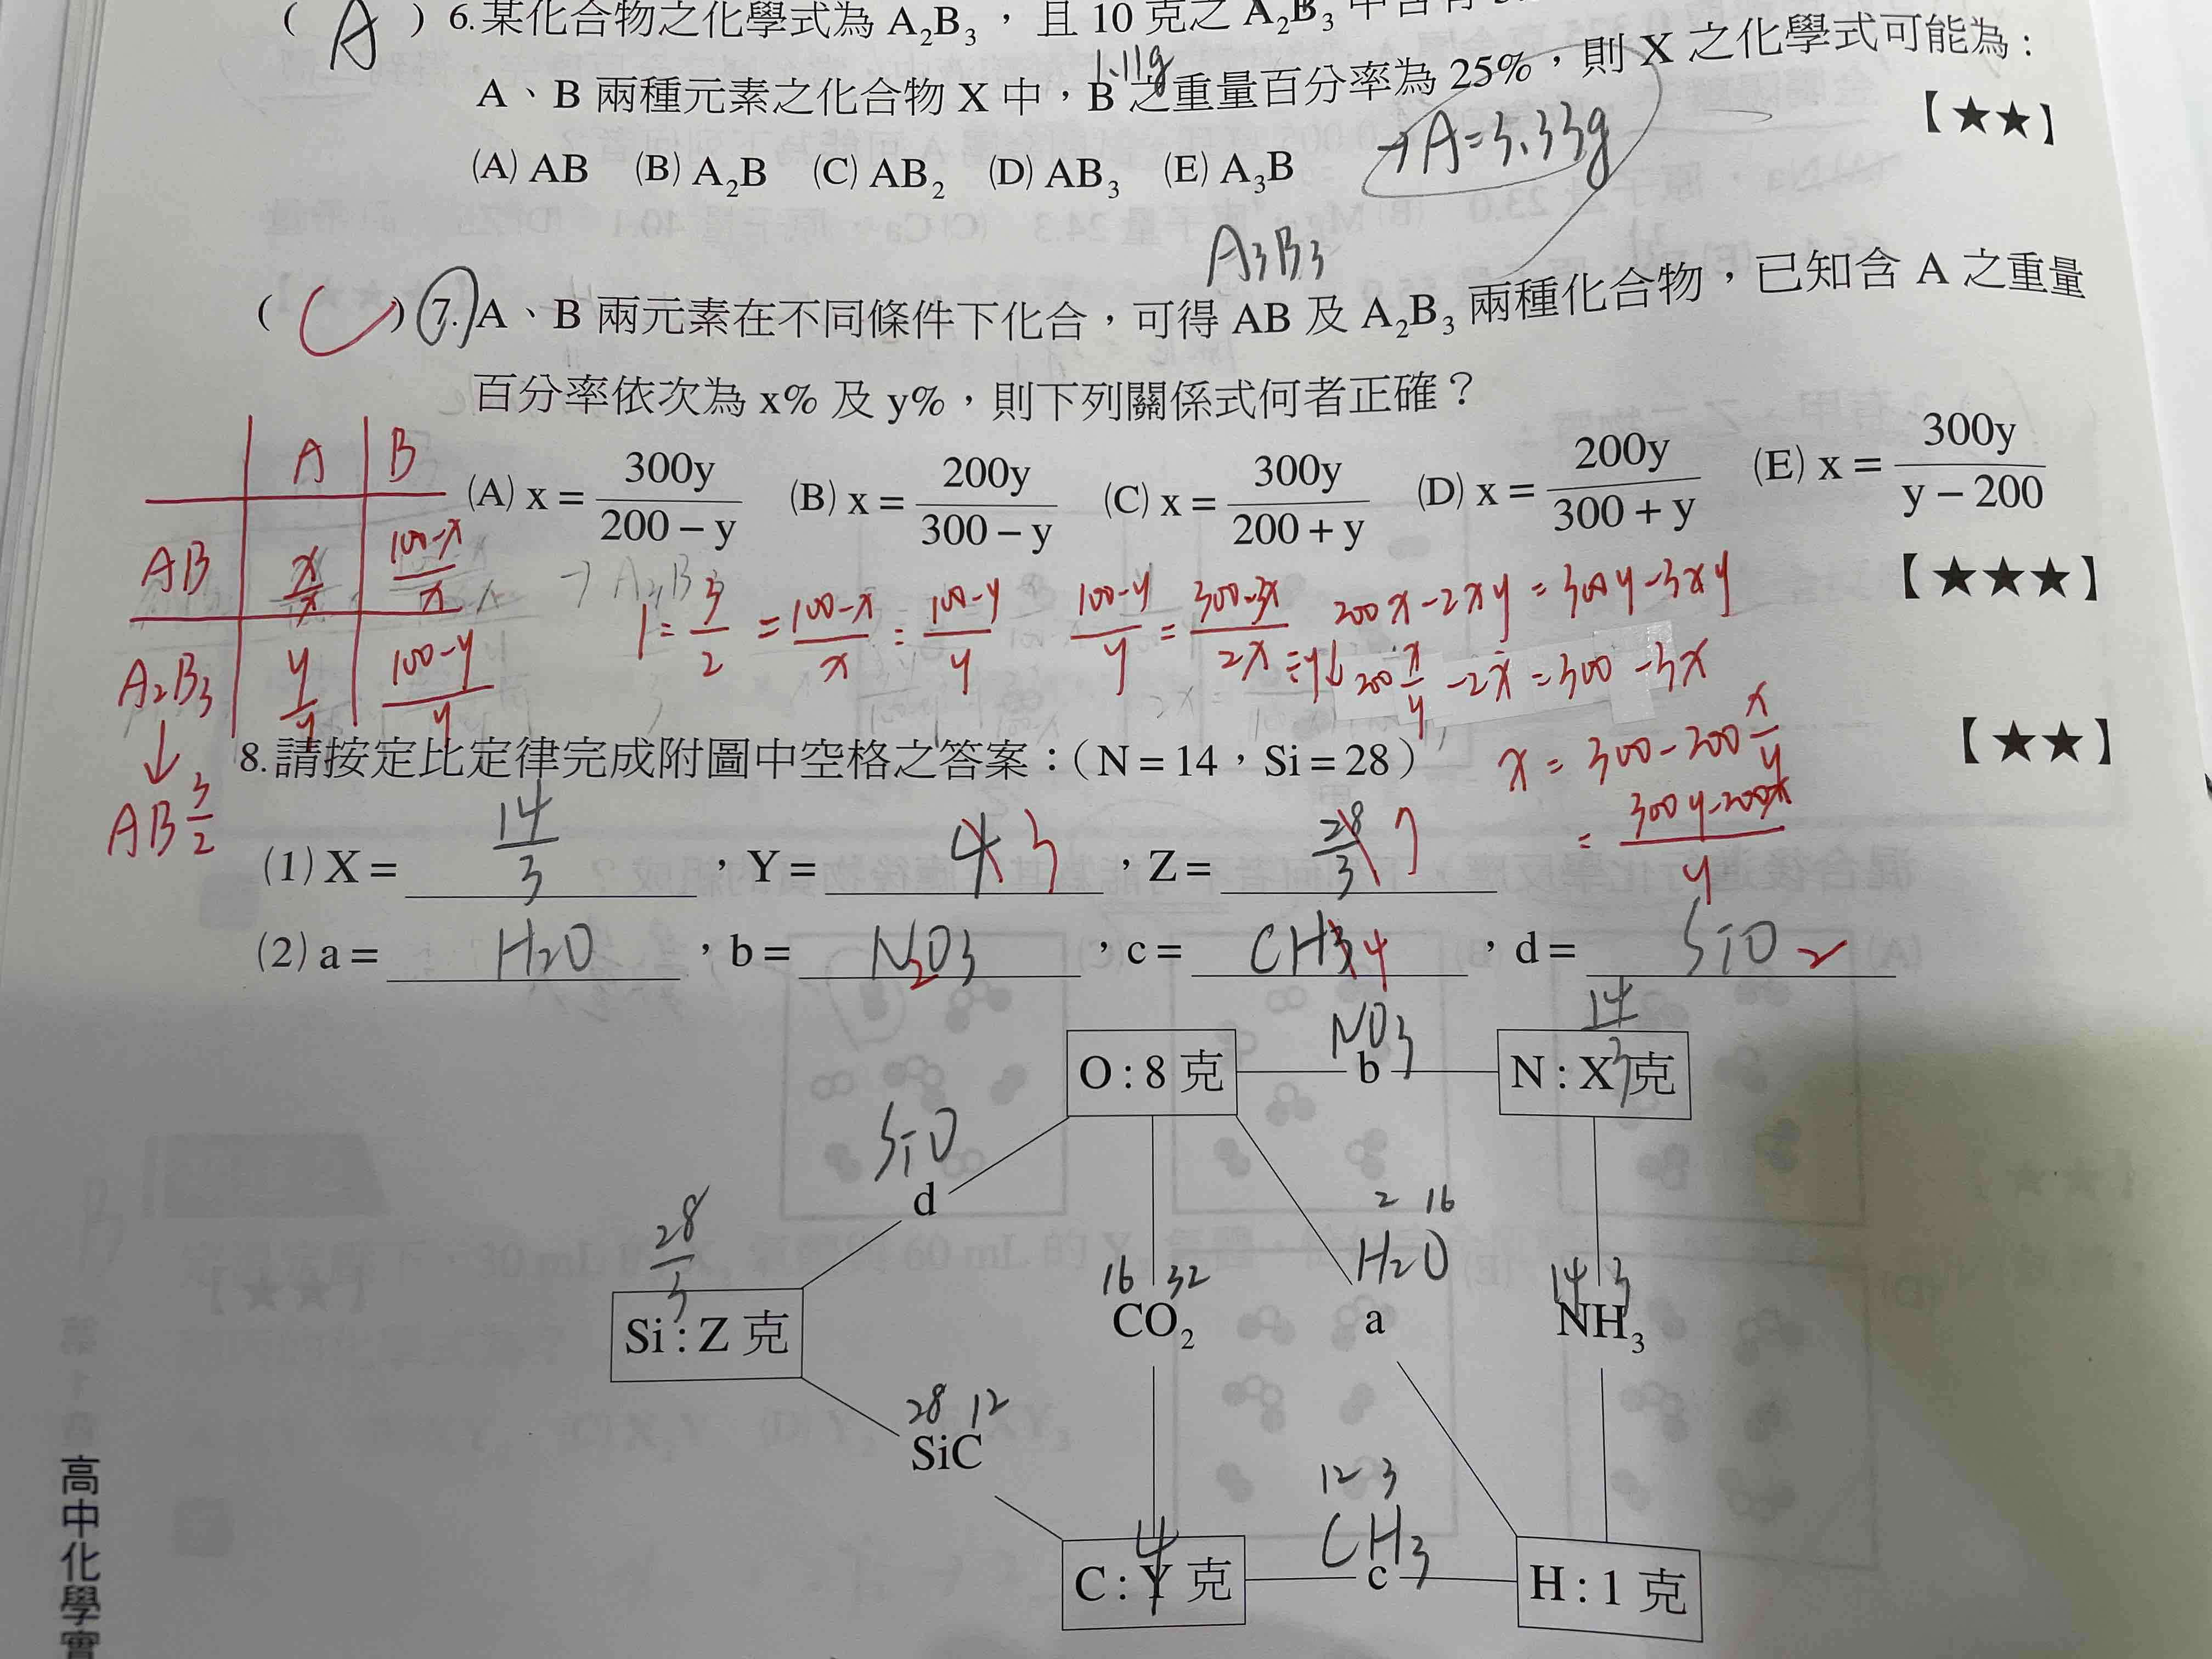 ( A ) 6.某化合物之化學式為 A₂B₃，且 10 克之 A₂B₃ 中含有
1.11g
A、B 兩種元素之化合物 X 中，B 之重量百分率為 25%，則 X 之化學式可能為：
→A=3.33g
【★★】
(A) AB (B) A₂B (C) AB₂ (D) AB₃ (E) A₃B
A₃B₃
( C ) 7. A、B 兩元素在不同條件下化合，可得 AB 及 A₂B₃ 兩種化合物，已知含 A 之重量
百分率依次為 x% 及 y%，則下列關係式何者正確？
(A) x = 300y/(200 − y) (B) x = 200y/(300 − y) (C) x = 300y/(200 + y) (D) x = 200y/(300 + y) (E) x = 300y/(y − 200)
【★★★】
A B
AB x/x (100-x)/x
A₂B₃ y/y (100-y)/y
↓
AB 3/2
→ A₂B₃
1 = 3/2 = (100-x)/x = (100-y)/y
(100-y)/y = (300-3x)/2x
200x-2xy = 300y-3xy
÷y↓ 200 x/y -2x = 300 -3x
x = 300-200 x/y
= (300y-200x)/y
8.請按定比定律完成附圖中空格之答案：（N = 14，Si = 28）
【★★】
(1) X = 14/3 ，Y = 4 3 ，Z = 28/3 7
(2) a = H₂O ，b = N₂O₃ ，c = CH3 4 ，d = SiO₂
O : 8 克
NO₃
b
14/3
N : X 克
SiO
d
28/3
Si : Z 克
16 32
CO₂
2 16
H₂O
a
14 3
NH₃
28 12
SiC
4
C : Y 克
12 3
CH₃
c
H : 1 克
高中化學實